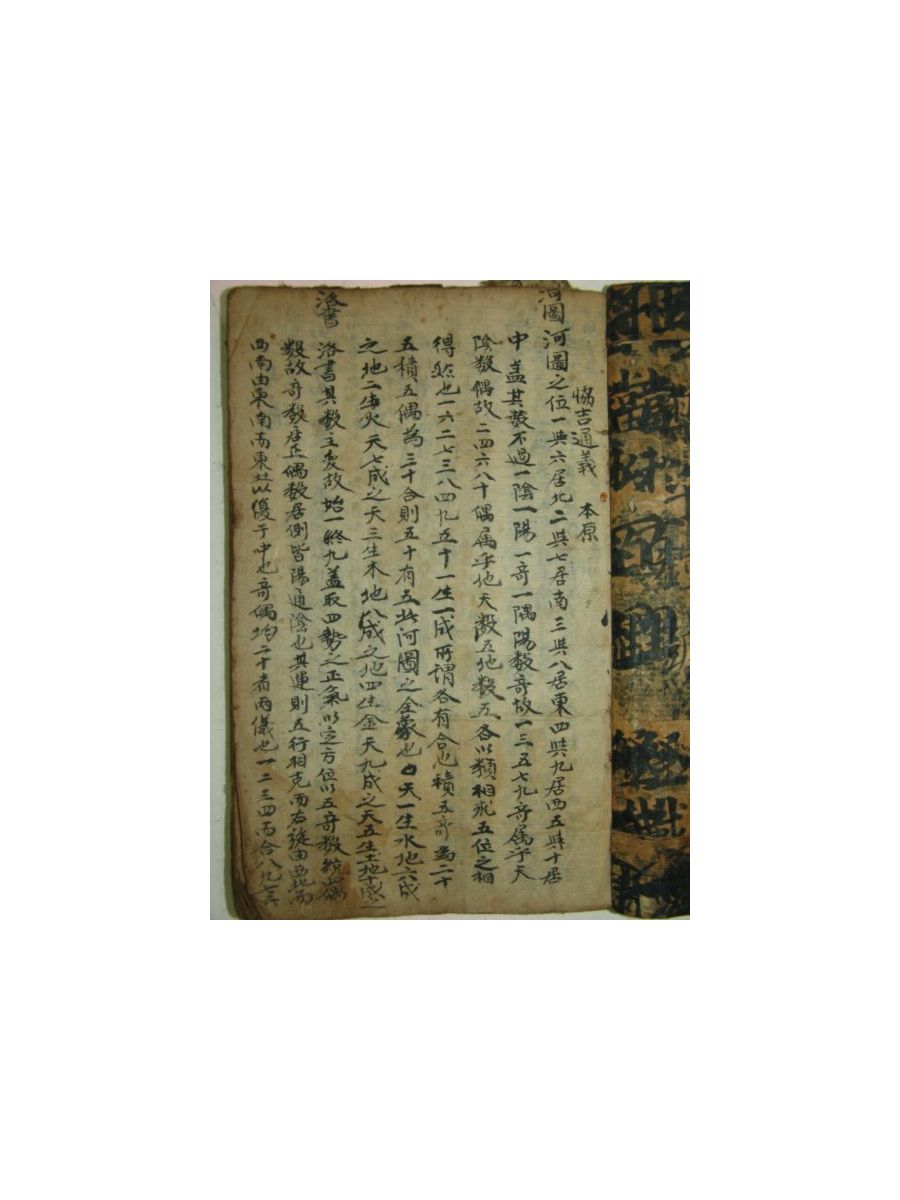 協吉通義 本原
河圖
河圖之位一與六居北二與七居南三與八居東四與九居西五與十居
中盖其數不過一陰一陽一奇一隅陽數奇故一三五七九奇属乎天
陰数偶故二四六八十偶属乎地天数五地数五各以類相求五位之相
得然也一六二七三八四九五十一生一成所謂各有合也積五奇為二十
五積五偶為三十合則五十有五此河圖之全象也天一生水地六成
之地二生火天七成之天三生木地八成之地四生金天九成之天五生土地十成之
洛書
洛書其数主变故始一終九盖取四勢之正氣以定方位以五奇数統四偶
数故奇数居正偶数居側皆陽通陰也其運則五行相克而右旋由西北而
西南由東南而東北以復于中也奇偶均二十者兩儀也一二三四而合八九七六